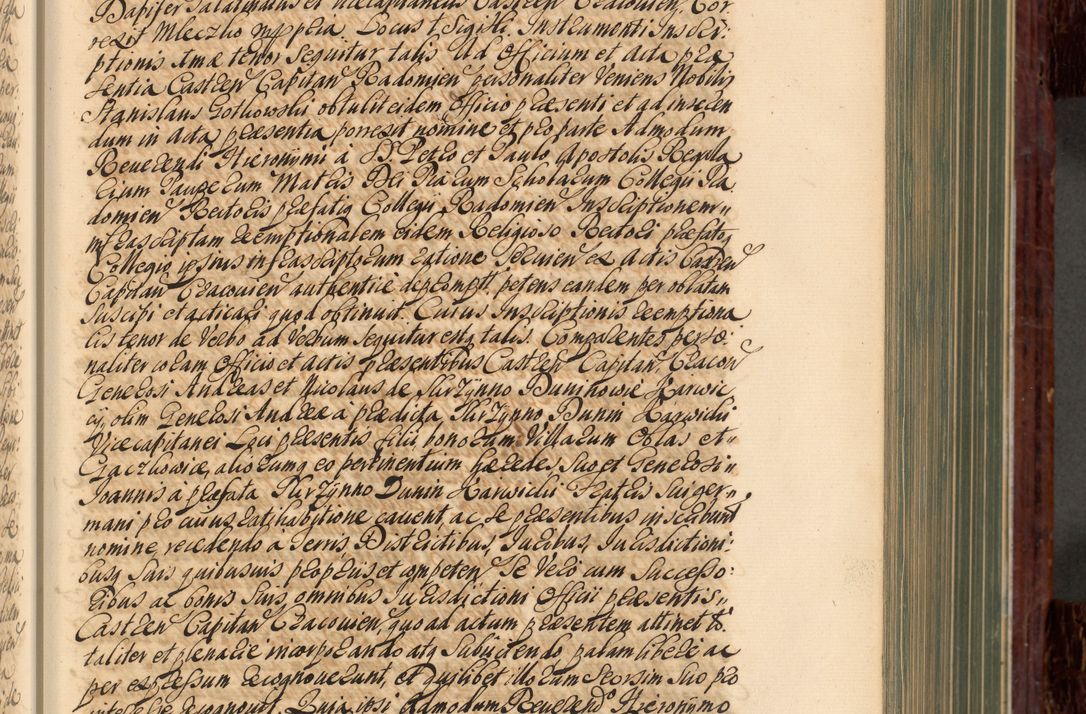 Dapifer Palatinatus et Vicecapitaneus Castren Cracovien, Cor
rexit Mleczko mpp pria. Locus L Sigilli. Instrumenti Inscri:
ptionis Amæ tenor Sequitur talis. Ad Officium et Acta præ
sentia Castren Capitan Radomien personaliter Veniens Nobilis
Stanislaus Gotkowski obtulit eidem Officio præsenti et ad inseren
dum in Acta præsentia porrexit nomine et pro parte Admodum
Reverendi Hieronymi à SS. Petro et Paulo Apostolis Regula
rium Pauperum Matris Dei Piarum Scholarum Collegii Ra
domien Rectoris præfatiq Collegii Radomien Inscriptionem
infrascriptam exemptionalem eidem Religioso Rectori præfatoq
Collegio ipsius infrascriptorum ratione Servien ex Actis Castren
Capitan Cracovien authentice depromptt, petens eandem per oblatam
Suscipi et acticari quod obtinuit. Cuius Inscriptionis exemptiona
lis tenor de Verbo ad Verbum Sequitur estq talis. Comparentes perso:
naliter coram Officio et Actis præsentibus Castren Capitan Cracov
Generosi Andreas et Nicolaus de Skrzynno Duninowie Karwic
cy, olim Generosi Andreæ à prædicta Skrzynno Dunin Karwicki
Vicecapitanei Loci præsentis filii bonorum Villarum Oblas et
Gaczkowice, aliorumq eo pertinentium hæredes, Suo et Generosi
Joannis à præfata Skrzynno Dunin Karwicki Fratris Sui ger
mani pro cuius ratihabitione cavent, ac se præsentibus inscribunt
nomine, recedendo a Terris, Districtibus, Juribus, Jurisdictioni:
busq Suis quibusuis propriis et competen Se Vero cum Successo:
ribus ac bonis Suis, omnibus Jurisdictioni Officii præsentis
Castren Capitan Cracovien, quo ad actum præsentem attinet &.
taliter et plenarie incorporando atq Subiiciendo palam libere ac
per expressum recognoverunt, et quilibet illorum Seorsim Suo pro
interesse recognovit. Quia ipsi Admodum Reverendo Hieronymo